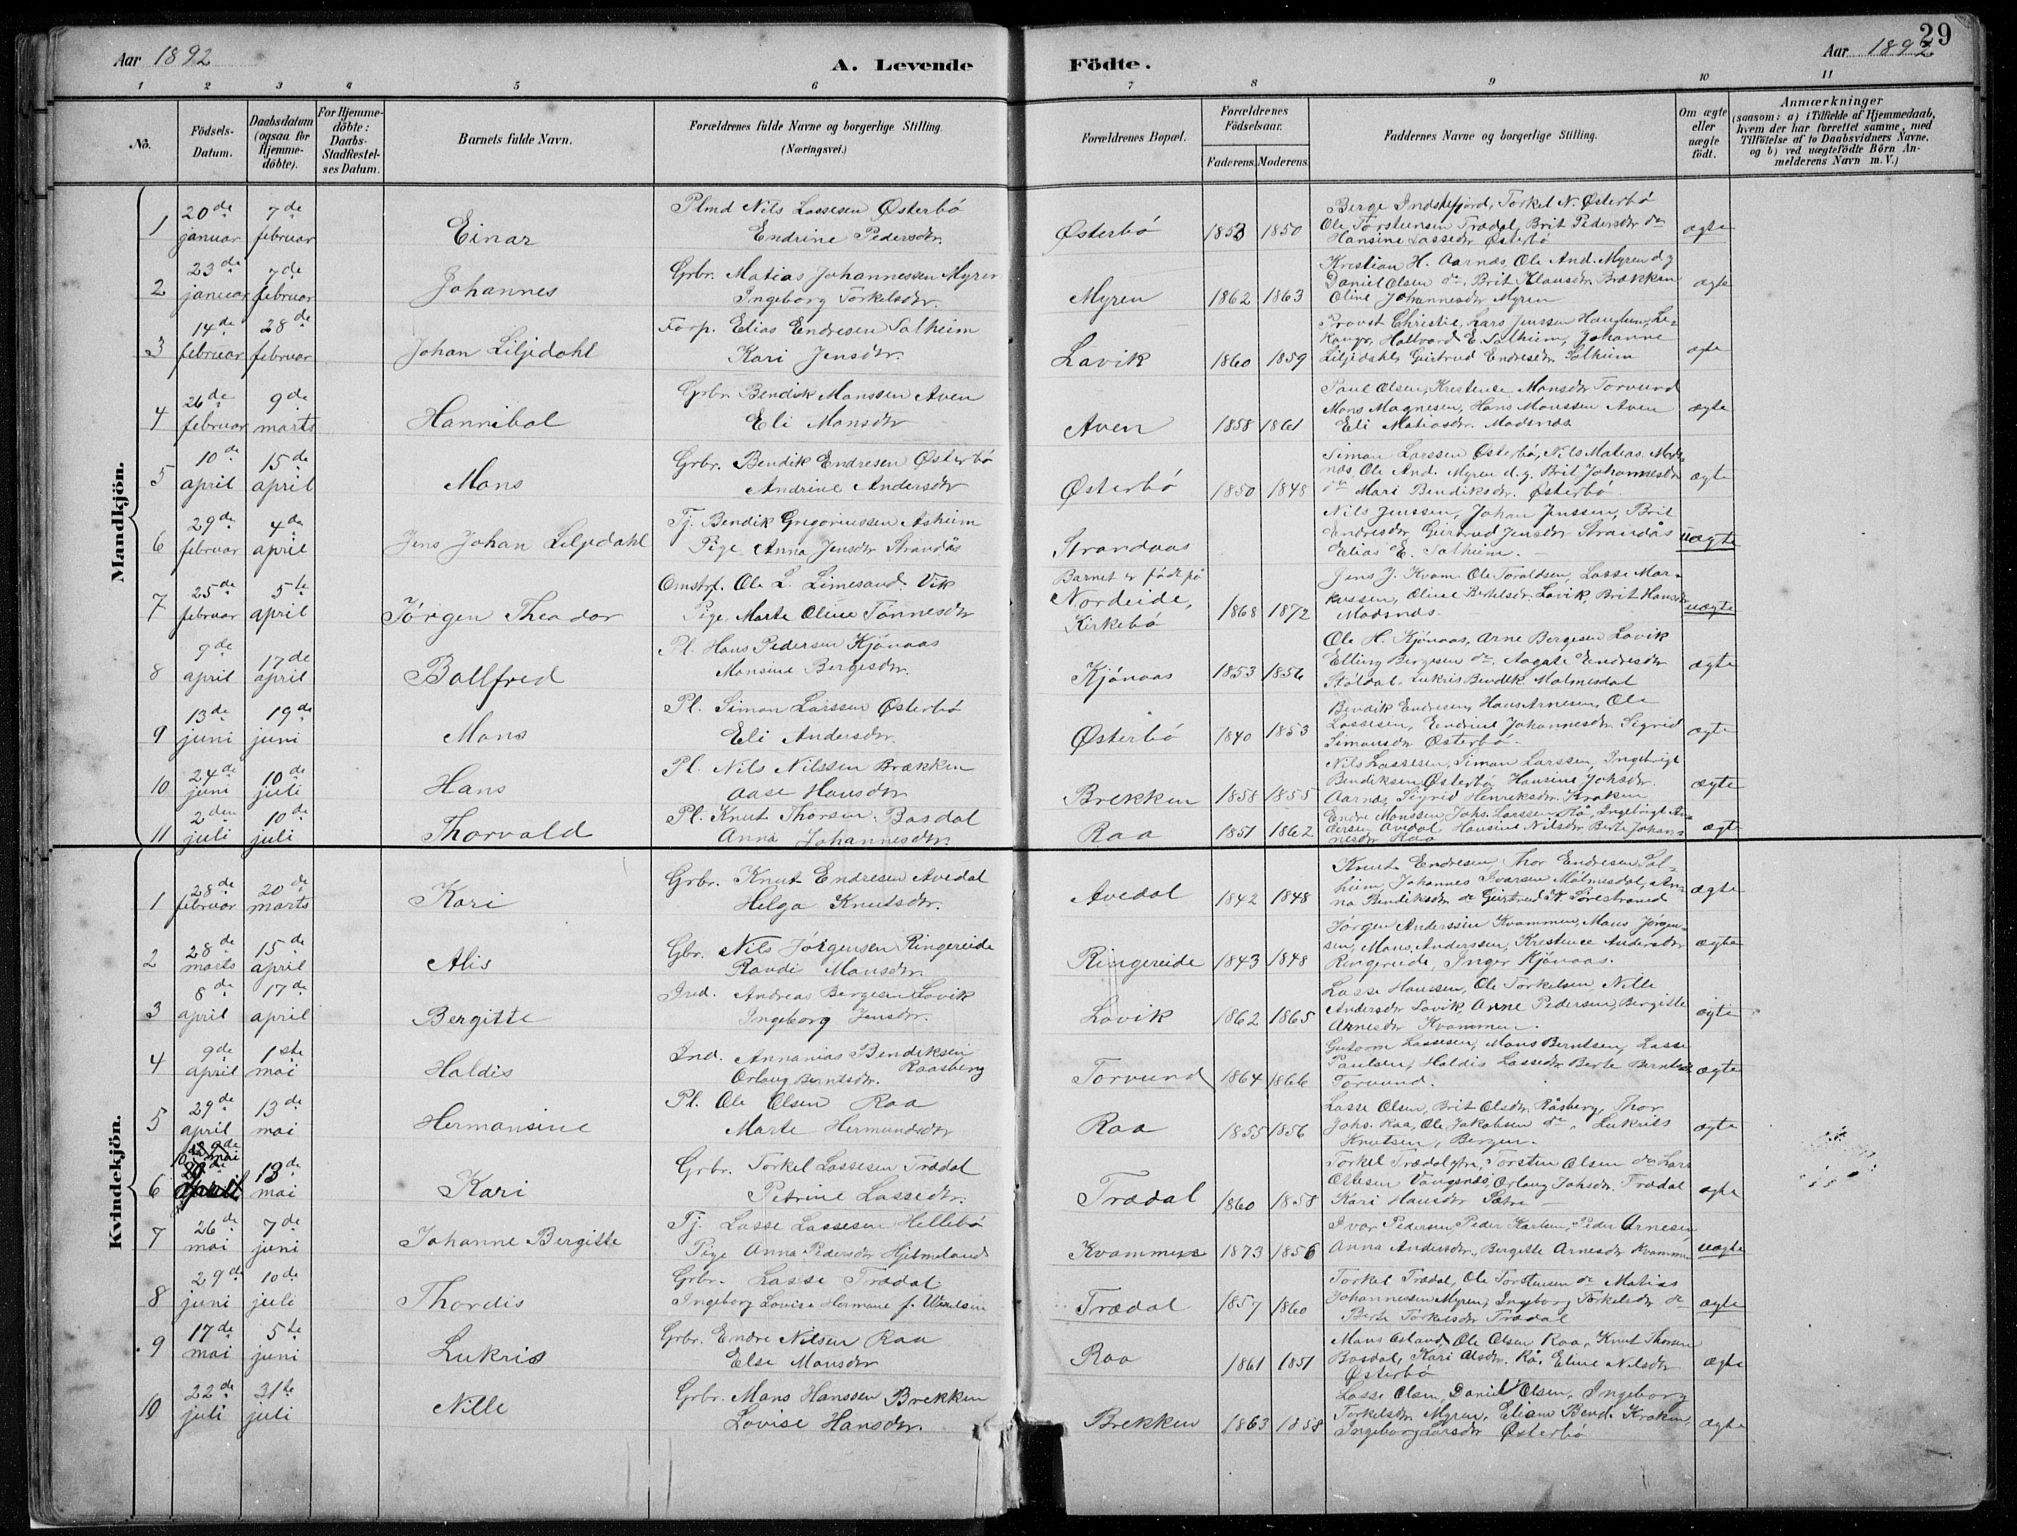 29
Aar 1892
A. Levende
Födte.
Aar 1892
1 2 3 4 5 6 7 8 9 10 11
No.
Födsels-Datum.
Daabsdatum (ogsaa for Hjemme-döbte).
For Hjemme-döbte: Daabs-Stadfæstel-ses Datum.
Barnets fulde Navn.
Forældrenes fulde Navne og borgerlige Stilling. (Næringsvei.)
Forældrenes Bopæl.
Forældrenes Födselsaar.
Faderens. Moderens.
Faddernes Navne og borgerlige Stilling.
Om ægte eller uægte födt.
Anmærkninger
(saasom: a) i Tilfælde af Hjemmedaab, hvem der har forrettet samme, med Tilföielse af to Daabsvidners Navne. og b) ved uægtefödte Börn Anmelderens Navn m. V.)
Mandkjön.
1 20de januar 7de februar Einar Plmd Nils Lassesen Østerbö Endrine Pedersdr. Østerbö 1853 1850
Ole Torsteinsen Trædal, Brit Pedersdr do
Hansine Lassedr Østerbö ægte
2 23de januar 7de februar Johannes Grbr. Matias Johannessen Myren Ingeborg Torkelsdr. Myren 1862 1863
Kristian H. Aarnæs, Ole And. Myren d.y
Daniel Olsen do. Brit Klausdr. Brækken
Oline Johannesdr Myren ægte
3 14de februar 28de februar Johan Liljedahl Forp. Elias Endresen Salheim Kari Jensdr. Lavik 1860 1859
Provst Christie, Lars Jenssen
Hallvard E. Salheim, Johanne
Liljedahl, Gjertrud Endresdr. Salheim
4 26de februar 9de marts Hannibal Grbr. Bendik Monssen Aven Eli Monsdr Aven 1858 1861
Paul Olsen, Kristense Monsdr Torvund
Mons Magnesen, Hans Monssen Aven
Eli Matiasdr. Madsnæs ægte
5 10de april 15de april Mons Grbr. Bendik Endresen Østerbö Andrine Andersdr Østerbö 1850 1848
Simon Larssen Østerbö, Nils Matias.
Ole And. Myren d.y. Brit Johannesdr
do Mari Bendiksdr. Østerbö. ægte
6 29de februar 4de april Jens Johan Liljedahl Tj. Bendik Gregoriussen Asheim Pige Anna Jensdr Strandås Strandaas
Nils Jenssen, Johan Jenssen, Brit
Endresdr Gjertrud Jensdr Strandås
Elias E. Salheim. uægte
7 25de februar 5te april Jörgen Theodor Omstrf. Ole L. Limesand Vik Pige Marte Oline Tönnesdr Barnet er födt på Nordeide, Kirkebö 1868 1872
Jens J. Kvam Ole Toraldsen, Lasse Mar-
kussen, Oline Bertelsdr. Lavik, Brit Hansdr
Madsnæs uægte
8 9de april 17de april Ballfred Pl. Hans Pedersen Kjönaas Monsine Bergesdr. Kjönaas 1853 1856
Ole H. Kjönaas, Arne Bergesen Lavik
Elling Bergesen do. Aagate Endresdr
Stöldal Lukris Bendik. Molmesdal ægte
9 13de juni 19de juni Mons Pl. Simon Larssen Østerbö Eli Andersdr. Østerbö 1840 1853
Bendik Endresen, Hans Arnesen, Ole
Lassesen, Endrine Johannesdr. Sigrid
Simonsdr Østerbö. ægte
10 24de juni 10de juli Hans Pl. Nils Nilssen Brækken Aase Hansdr Brekken 1858 1855
Nils Lassesen, Simon Larssen, Ingebrigt
Bendiksen Østerbö, Hansine Johsdr.
Aarnæs, Sigrid Henriksdr. Kraken ægte
11 2den juli 10de juli Thorvald Pl. Knut Thorsen Basdal Anna Johannesdr. Raa 1851 1862
Endre Monssen, Johs. Larssen Rå, Ingebrigt An-
dersen Avedal, Hansine Nilsdr. Berte Johan-
nesdr Raa ægte
Kvindekjön.
1 28de februar 20de marts Kari Grbr. Knut Endresen Avedal Helga Knutsdr. Avedal 1842 1848
Knut Endresen, Thor Endresen Sal-
heim, Johannes Ivarsen Molmesdal, An-
na Bendiksdr do Gjertrud K. Sörestrand ægte
2 28de marts 15de april Alis Gbr. Nils Jörgensen Ringereide Randi Monsdr. Ringereide 1843 1848
Jörgen Anderssen Kvammen, Mons Jörgen-
sen, Mons Anderssen, Kristence Andersdr
Ringereide, Inger Kjönaas. ægte
3 8de april 17de april Bergitte Ind. Andreas Bergesen Lavik Ingeborg Jensdr. Lavik 1862 1865
Lasse Hanssen, Ole Torkelsen Nille
Andersdr Lavik, Arne Pedersen, Bergitte
Arnesdr Kvammen. ægte
4 9de april 1ste mai Haldis Ind. Annanias Bendiksen Raasberg Orlaug Berntsdr. Torvund 1864 1866
Gutorm Lassesen, Mons Berntsen, Lasse
Paulsen, Haldis Lassedr Berte Berntsdr
Torvund. ægte
5 29de april 13de mai Hermansine Pl. Ole Olsen Raa Marte Hermundsdr Raa 1855 1856
Lasse Olsen, Brit Olsdr. Råsberg, Thor
Johs. Raa, Ole Jakobsen do, Lukris
Knutsen, Bergen. ægte
6 13de mai Kari Grbr. Torkel Lassesen Trædal Petrine Lassedr. Trædal 1860 1858
Torkel Trædal Torsten Olsen do Lars
Ottesen Vangsnæs, Orlaug Johsdr. Trædal
Kari Hansdr Sætre ægte
7 26de mai 7de juni Johanne Bergitte Tj. Lasse Lassesen Hellebö Pige Anna Pedersdr Hjelmeland Kvammen 1873 1856
Ivar Pedersen, Peder Karlsen, Peder Arnesen,
Anna Andersdr., Bergitte Arnesdr Kvammen uægte
8 29de juni 10de juli Thordis Grbr. Lasse Trædal Ingeborg Lovise Hermane f. Trædal 1857 1860
Torkel Trædal, Ole Torsteinsen do Matias
Johannessen Myren, Ingeborg Torkelsdr do
Berte Torkelsdr Trædal ægte
9 17de mai 5te juni Lukris Grbr. Endre Nilsen Raa Else Monsdr Raa 1861 1851
Mons Osland, Ole Olsen Raa, Knut Thorsen
Basdal, Kari Olsdr. Rå, Eline Nilsdr
Østerbö ægte
10 22de juli 31te juli Nille Grbr. Mons Hanssen Brekken Lovise Hansdr. Brekken 1863 1858
Lasse Olsen, Daniel Olsen, Ingeborg
Torkelsdr. Myren, Eliane Bend. Kraken,
Ingeborg Larsdr Østerbö ægte